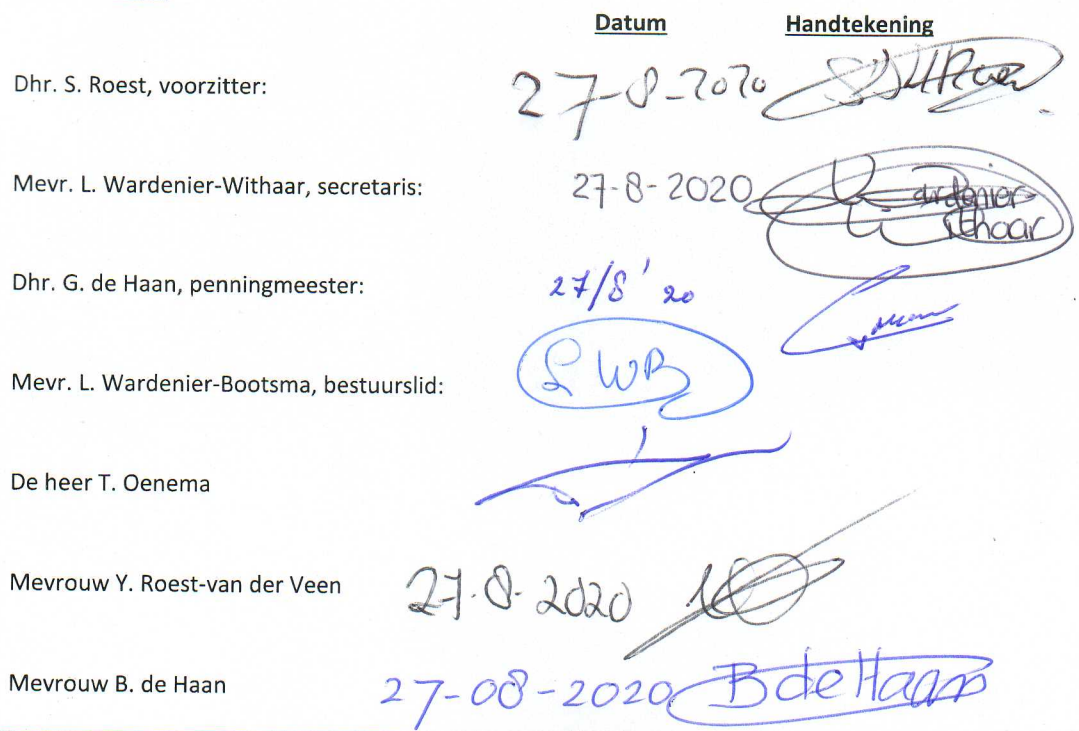 Datum Handtekening
Dhr. S. Roest, voorzitter: 27-8-2020
Mevr. L. Wardenier-Withaar, secretaris: 27-8-2020 Wardenier-
Withaar
Dhr. G. de Haan, penningmeester: 27/8 '20
Mevr. L. Wardenier-Bootsma, bestuurslid: LWB
De heer T. Oenema
Mevrouw Y. Roest-van der Veen 27-8-2020
Mevrouw B. de Haan 27-08-2020 B de Haan